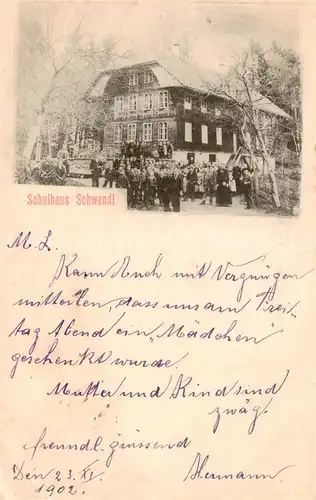 Schulhaus Schwendi
M. L.
Kann Euch mit Vergnügen
mitteilen, dass uns am Frei-
tag Abend ein „Mädchen"
geschenkt wurde.
Mutter und Kind sind
zwäg.
freundl. grüssend
Hermann.
Den 23. XI.
1902.